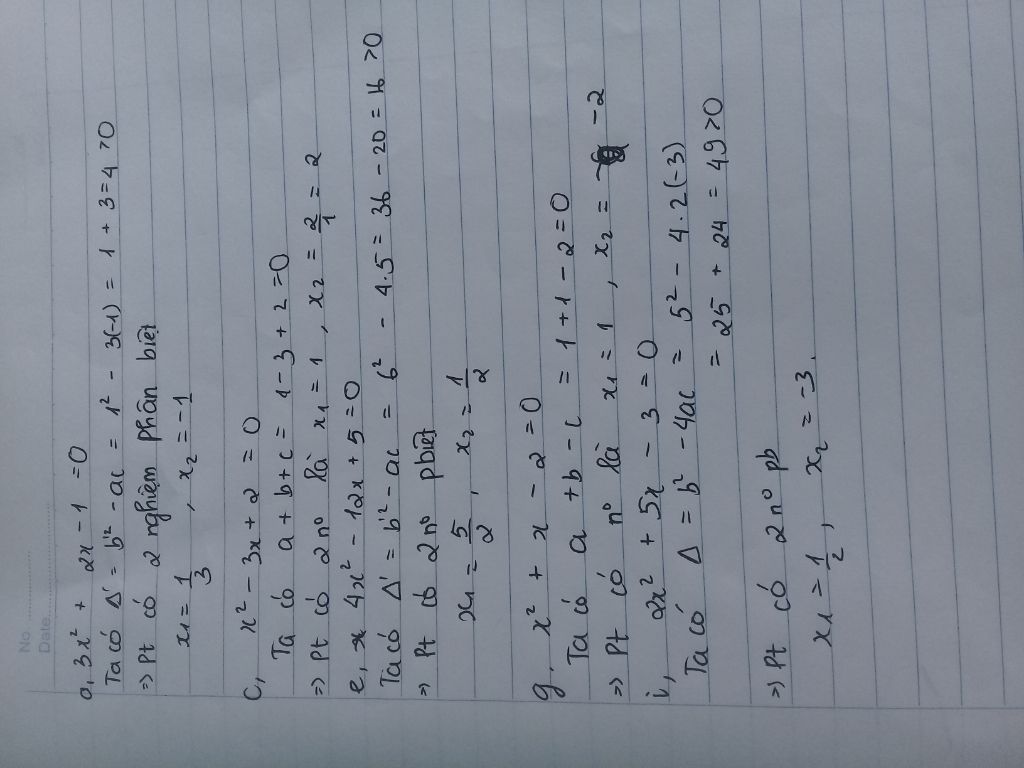 No.
Date.
a, 3x² + 2x - 1 = 0
Ta có Δ' = b'² - ac = 1² - 3(-1) = 1 + 3 = 4 > 0
=> Pt có 2 nghiệm phân biệt
x₁ = 1/3 , x₂ = -1
c, x² - 3x + 2 = 0
Ta có a + b + c = 1 - 3 + 2 = 0
=> Pt có 2 n° là x₁ = 1 , x₂ = 2/1 = 2
e, 4x² - 12x + 5 = 0
Ta có Δ' = b'² - ac = 6² - 4.5 = 36 - 20 = 16 > 0
=> Pt có 2 n° pbiệt
x₁ = 5/2 , x₂ = 1/2
g, x² + x - 2 = 0
Ta có a + b - c = 1 + 1 - 2 = 0
=> Pt có n° là x₁ = 1 , x₂ = -2
i, 2x² + 5x - 3 = 0
Ta có Δ = b² - 4ac = 5² - 4.2(-3)
= 25 + 24 = 49 > 0
=> Pt có 2 n° pb
x₁ = 1/2 , x₂ = -3.